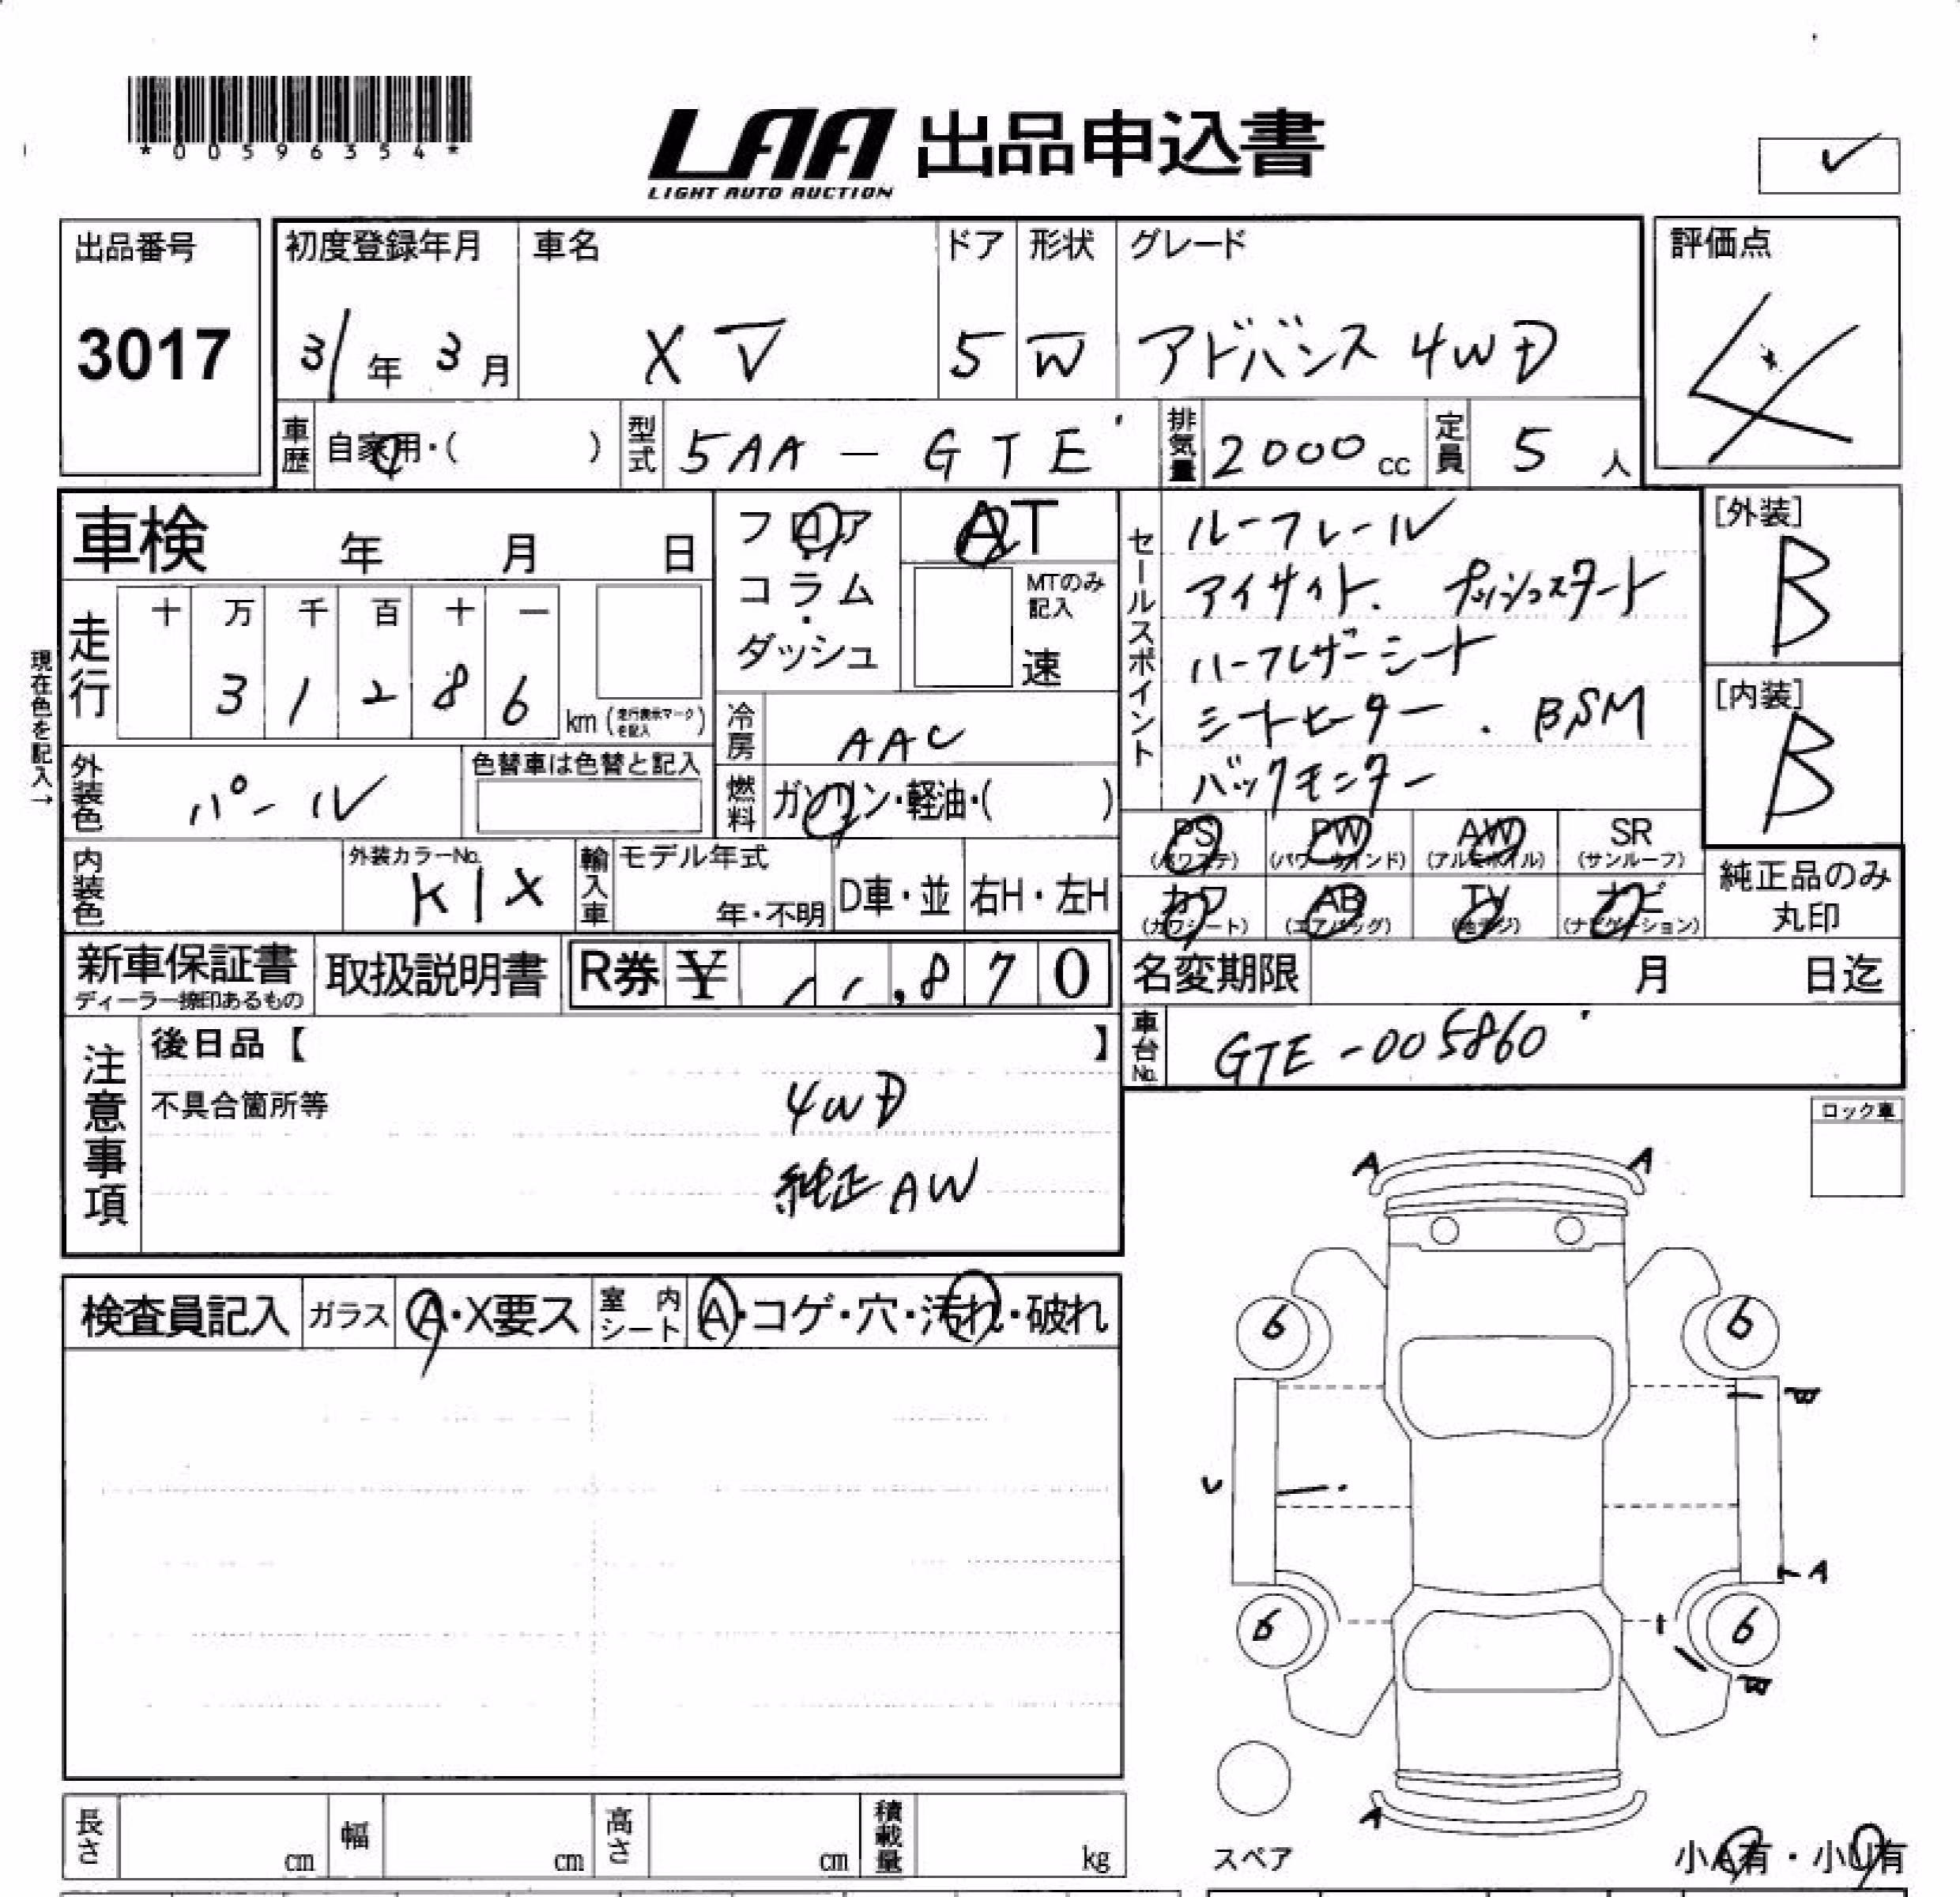 *00596354*
LAA 出品申込書
LIGHT AUTO AUCTION
✓
出品番号
3017
初度登録年月
31年 3月
車名
XV
ドア
5
形状
W
グレード
アドバンス 4WD
評価点
4
車歴
自家用・( )
型式
5AA - GTE
排気量
2000 cc
定員
5 人
車検 年 月 日
フロア
コラム
・
ダッシュ
AT
MTのみ
記入
速
セールスポイント
ルーフレール
アイサイト. プッシュスタート
ハーフレザーシート
シートヒーター . BSM
バックモニター
[外装]
B
[内装]
B
現在色を記入→
走行
十 万 千 百 十 一
3 1 2 8 6
km (走行表示マークを記入)
冷房
AAC
燃料
ガソリン・軽油・( )
外装色
パール
色替車は色替と記入
内装色
外装カラーNo.
K1X
輸入車
モデル年式
年・不明
D車・並
右H・左H
PS
(パワステ)
PW
(パワーウインド)
AW
(アルミホイル)
SR
(サンルーフ)
カワ
(カワシート)
AB
(エアバッグ)
TV
(地デジ)
ナビ
(ナビゲーション)
純正品のみ
丸印
新車保証書
ディーラー捺印あるもの
取扱説明書
R券 ¥ ,870
名変期限 月 日迄
車台No.
GTE-005860
注意事項
後日品【 】
不具合箇所等
4WD
純正AW
ロック車
検査員記入
ガラス
A・X要ス
室内シート
A・コゲ・穴・汚れ・破れ
A A
6 6
W
U
A
6 6
W
A
スペア
小A有・小U有
長さ cm
幅 cm
高さ cm
積載量 kg